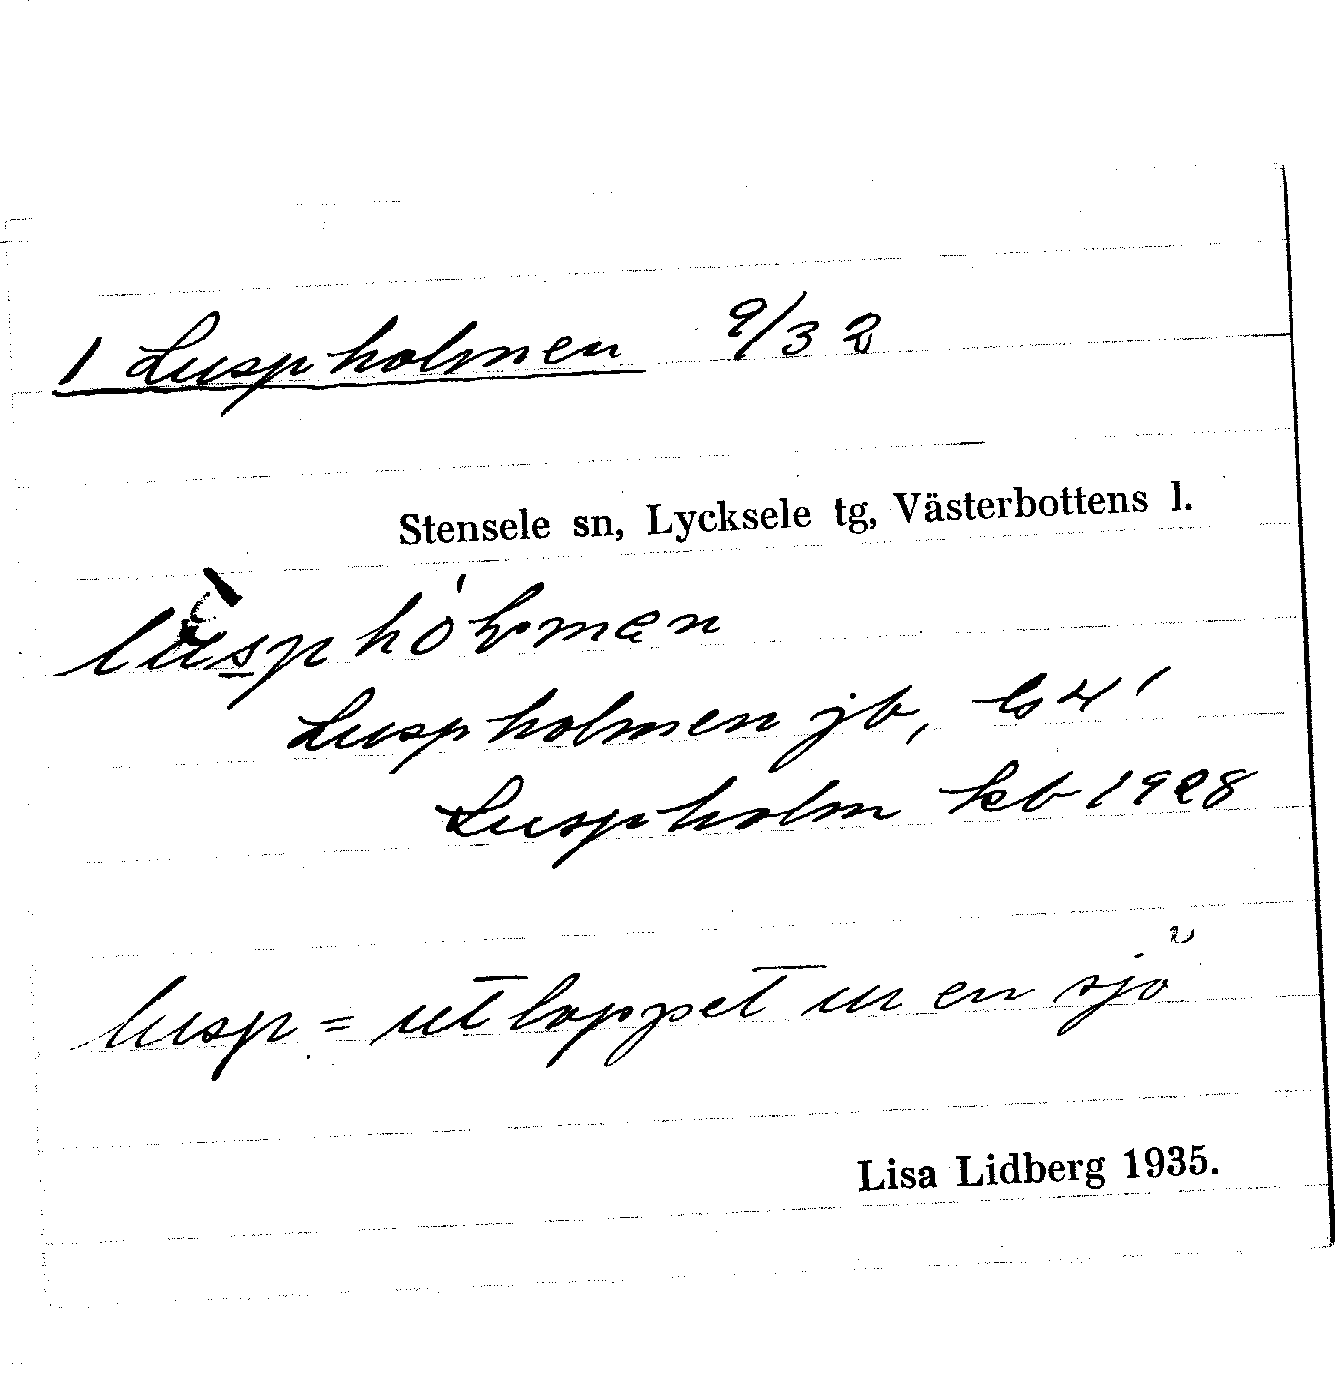 1 Luspholmen 9/32
Stensele sn, Lycksele tg, Västerbottens l.
Luspholmen jb,
Luspholm kb 1928
lusp = utloppet ur en sjö
Lisa Lidberg 1935.